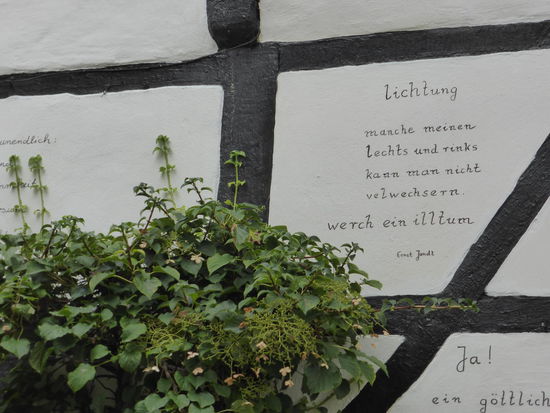 unendlich:
lichtung
manche meinen
lechts und rinks
kann man nicht
velwechsern.
werch ein illtum
Ernst Jandl
Ja!
ein göttlich